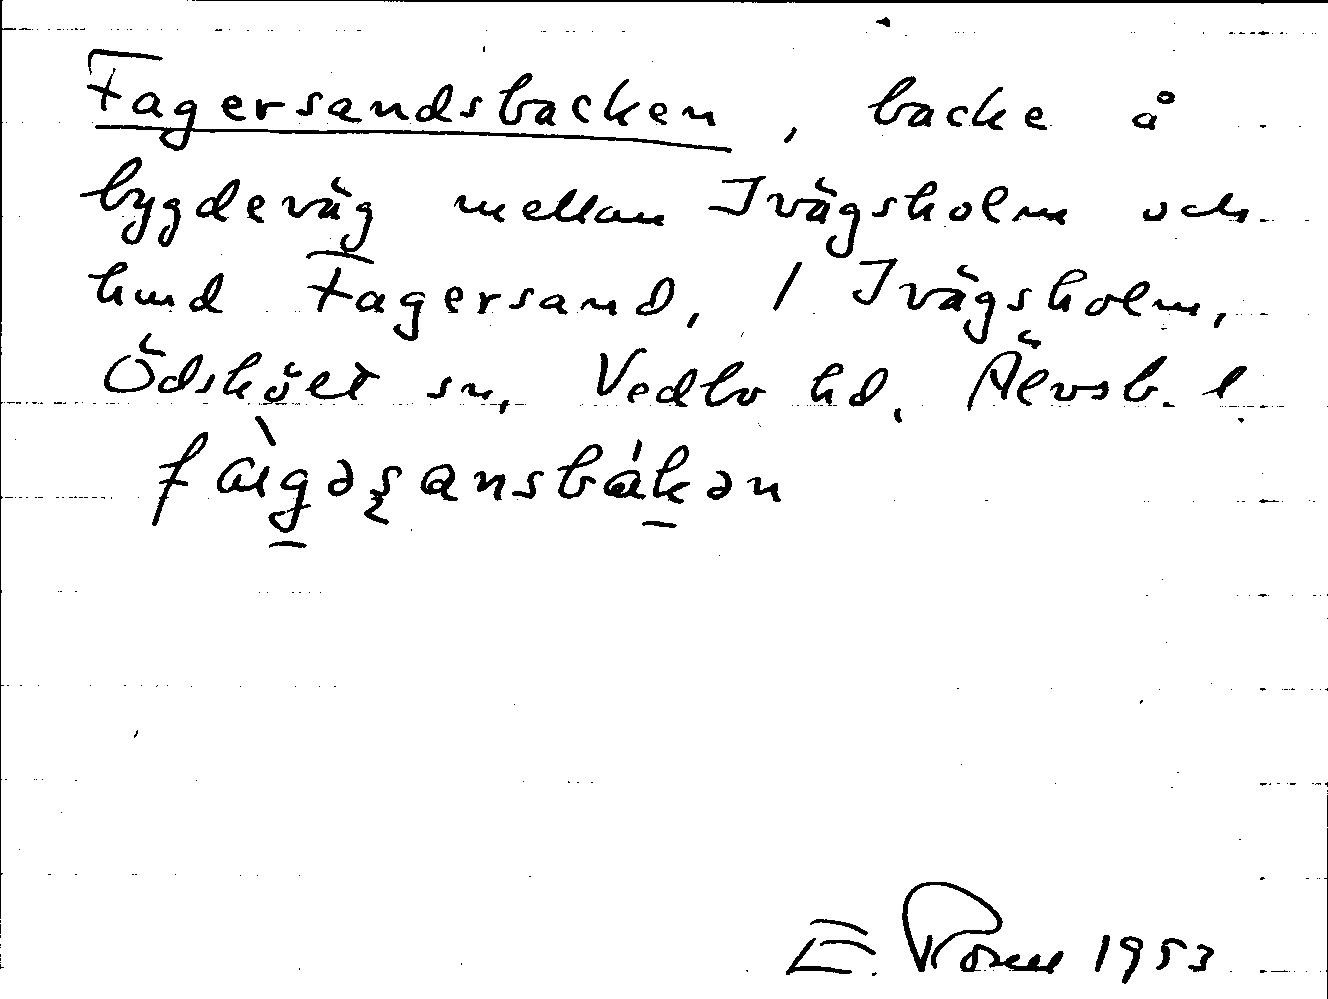 Fagersandsbacken, backe å
bygdeväg mellan Ivägsholm och
lund Fagersand, / Ivägsholm,
Ödsköлt sn, Vedbo hd. Älvsb. l.
fàgəʂansbákən
E. Rosell 1953